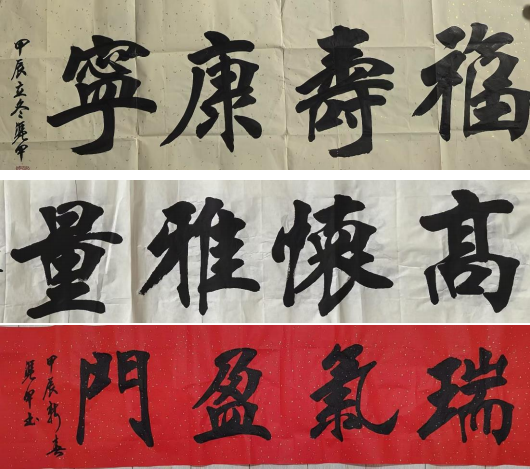 福壽康寧
甲辰立冬
髙懷雅量
瑞氣盈門
甲辰新春